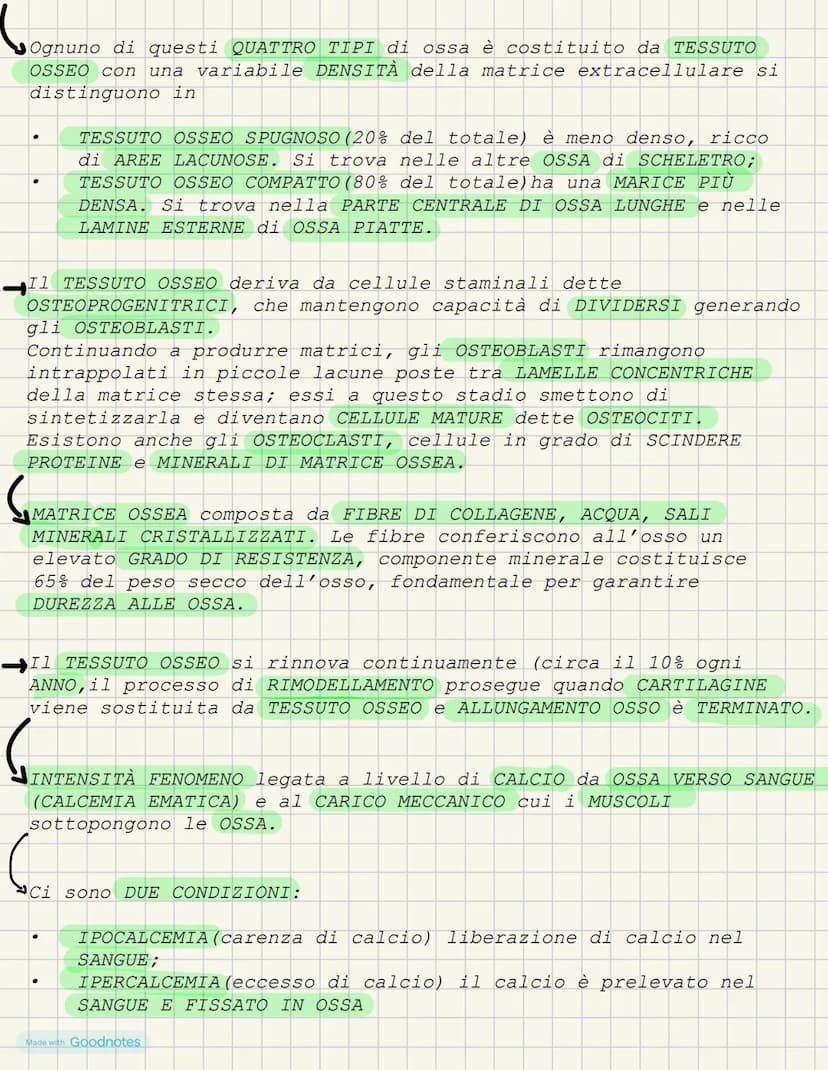 Ognuno di questi QUATTRO TIPI di ossa è costituito da TESSUTO
OSSEO con una variabile DENSITÀ della matrice extracellulare si
distinguono in
• TESSUTO OSSEO SPUGNOSO(20% del totale) è meno denso, ricco
di AREE LACUNOSE. Si trova nelle altre OSSA di SCHELETRO;
• TESSUTO OSSEO COMPATTO(80% del totale)ha una MARICE PIÙ
DENSA. Si trova nella PARTE CENTRALE DI OSSA LUNGHE e nelle
LAMINE ESTERNE di OSSA PIATTE.
Il TESSUTO OSSEO deriva da cellule staminali dette
OSTEOPROGENITRICI, che mantengono capacità di DIVIDERSI generando
gli OSTEOBLASTI.
Continuando a produrre matrici, gli OSTEOBLASTI rimangono
intrappolati in piccole lacune poste tra LAMELLE CONCENTRICHE
della matrice stessa; essi a questo stadio smettono di
sintetizzarla e diventano CELLULE MATURE dette OSTEOCITI.
Esistono anche gli OSTEOCLASTI, cellule in grado di SCINDERE
PROTEINE e MINERALI DI MATRICE OSSEA.
MATRICE OSSEA composta da FIBRE DI COLLAGENE, ACQUA, SALI
MINERALI CRISTALLIZZATI. Le fibre conferiscono all’osso un
elevato GRADO DI RESISTENZA, componente minerale costituisce
65% del peso secco dell’osso, fondamentale per garantire
DUREZZA ALLE OSSA.
Il TESSUTO OSSEO si rinnova continuamente (circa il 10% ogni
ANNO,il processo di RIMODELLAMENTO prosegue quando CARTILAGINE
viene sostituita da TESSUTO OSSEO e ALLUNGAMENTO OSSO è TERMINATO.
INTENSITÀ FENOMENO legata a livello di CALCIO da OSSA VERSO SANGUE
(CALCEMIA EMATICA) e al CARICO MECCANICO cui i MUSCOLI
sottopongono le OSSA.
Ci sono DUE CONDIZIONI:
• IPOCALCEMIA(carenza di calcio) liberazione di calcio nel
SANGUE;
• IPERCALCEMIA(eccesso di calcio) il calcio è prelevato nel
SANGUE E FISSATO IN OSSA
Made with Goodnotes